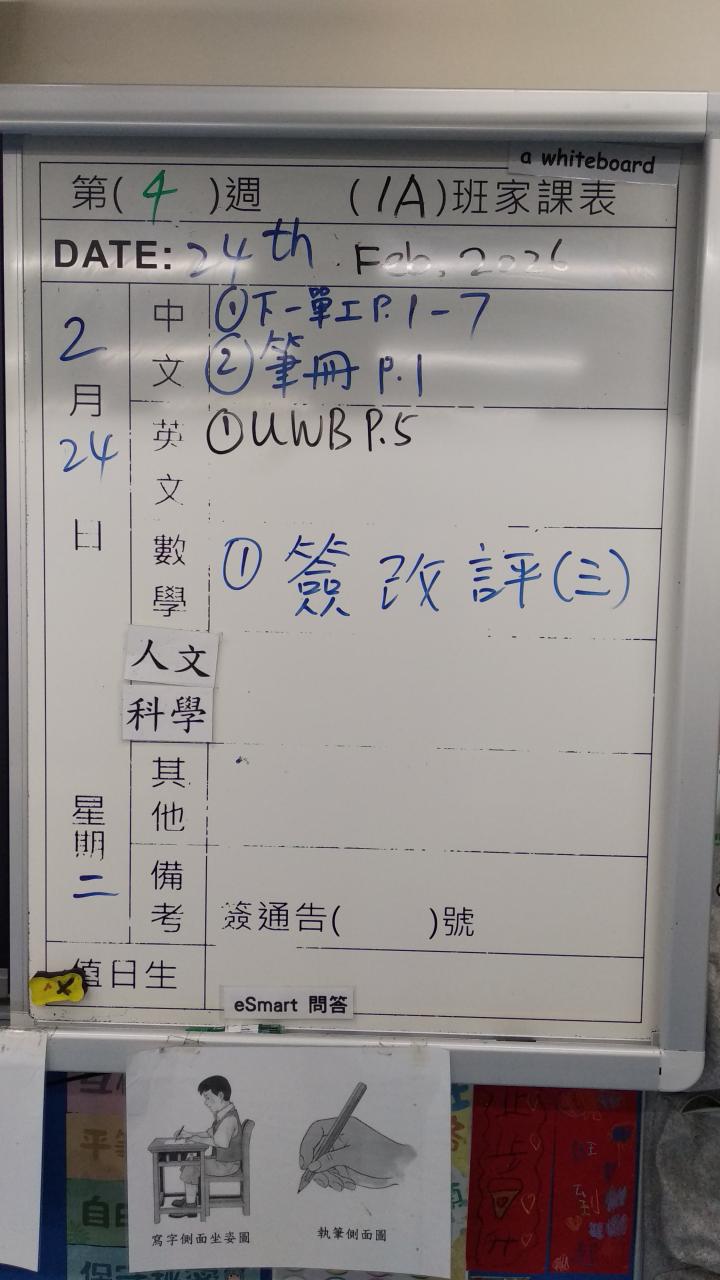 a whiteboard
第( 4 )週 (1A)班家課表
DATE: 24th Feb, 2026
2月24日
星期二
中文
①下一單工P.1-7
②筆冊 P.1
英文
①UWB P.5
數學
①簽改評(三)
人文
科學
其他
備考
簽通告( )號
值日生
eSmart 問答
寫字側面坐姿圖
執筆側面圖